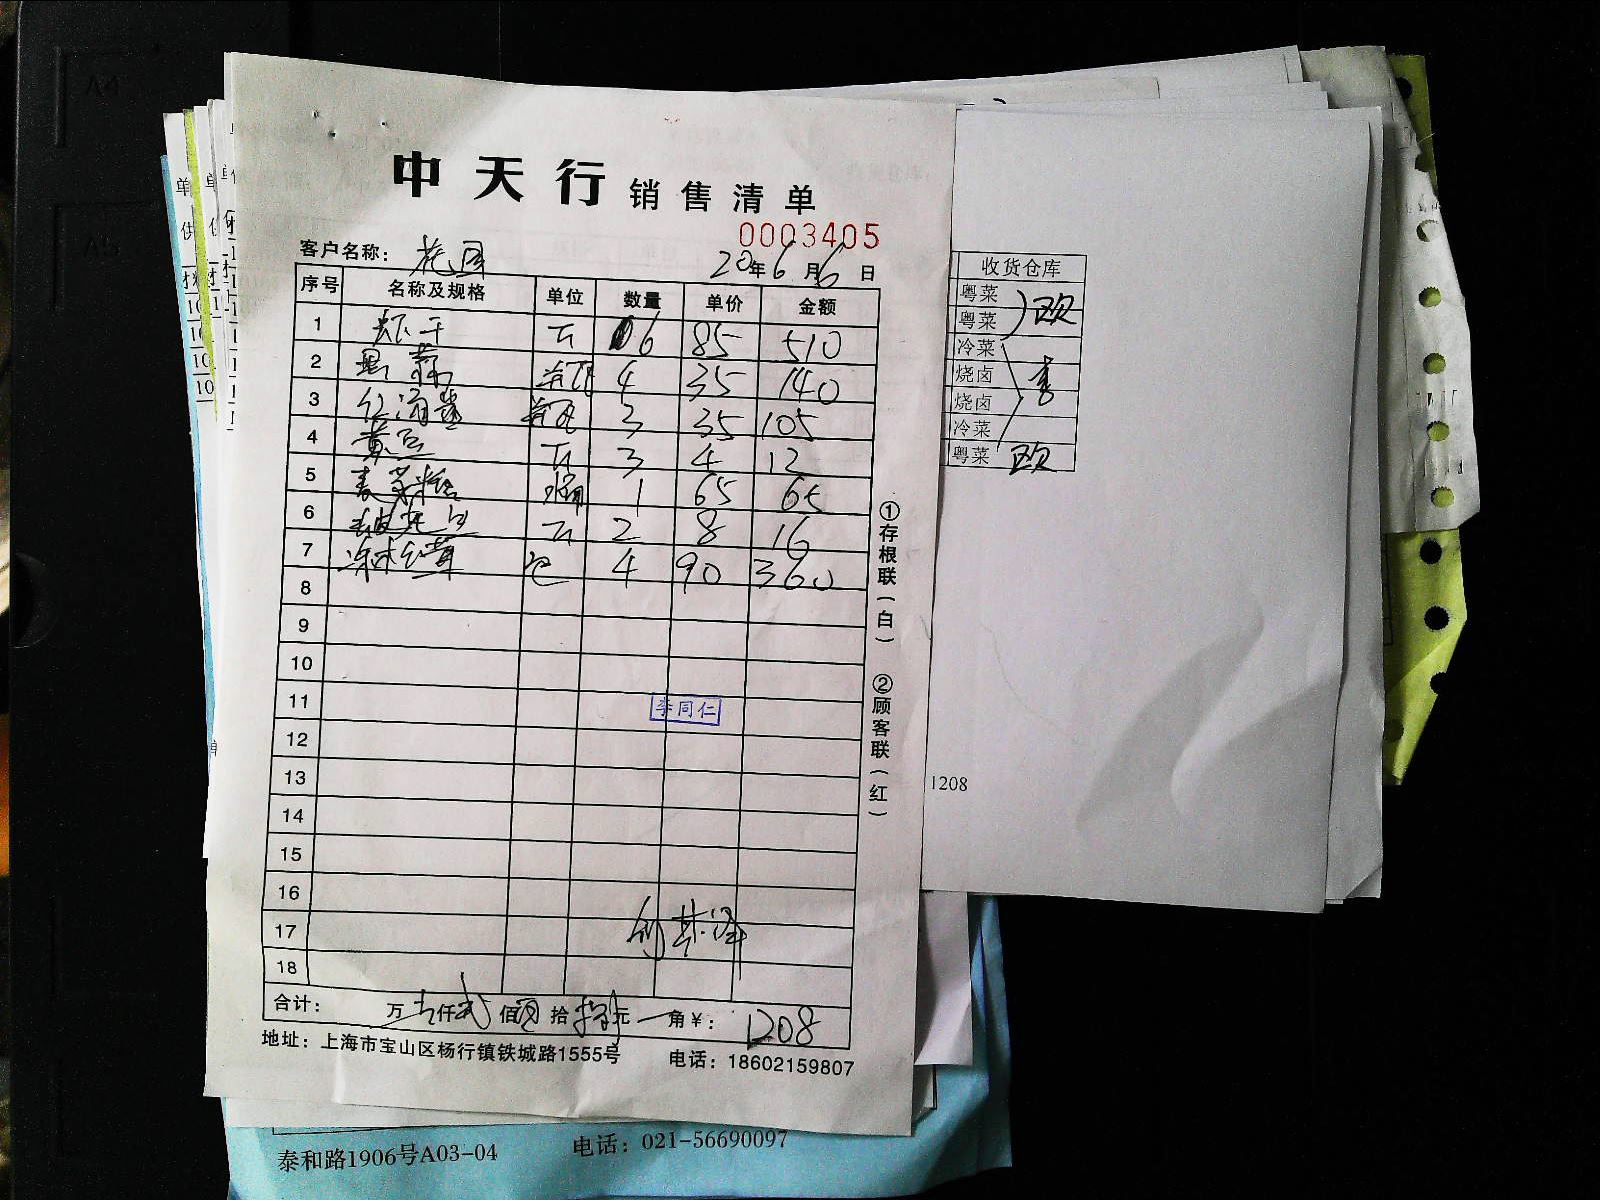 中天行 销售清单
0003405
客户名称： 花园 20年6月6日
序号 名称及规格 单位 数量 单价 金额
1 虾干 斤 6 85 510
2 4 35 140
3 3 35 105
4 黄豆 斤 3 4 12
5 麦芽糖 桶 1 65 65
6 斤 2 8 16
7 包 4 90 360
8
9
10
11 李同仁
12
13
14
15
16
17
18
合计： 万壹仟贰佰零拾捌元一角￥： 1208
地址：上海市宝山区杨行镇铁城路1555号 电话：18602159807
①存根联（白） ②顾客联（红）
收货仓库
粤菜
粤菜 欧
冷菜
烧卤 李
烧卤
冷菜
粤菜 欧
1208
泰和路1906号A03-04 电话：021-56690097